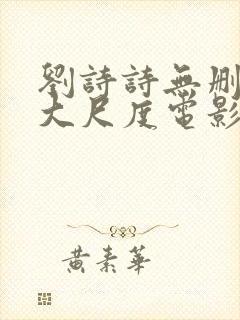 劉詩詩無刪
大尺度電影
黃素華